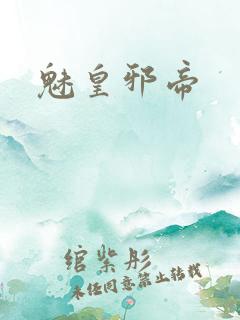 魅皇邪帝
绾紫彤
未经同意禁止转载